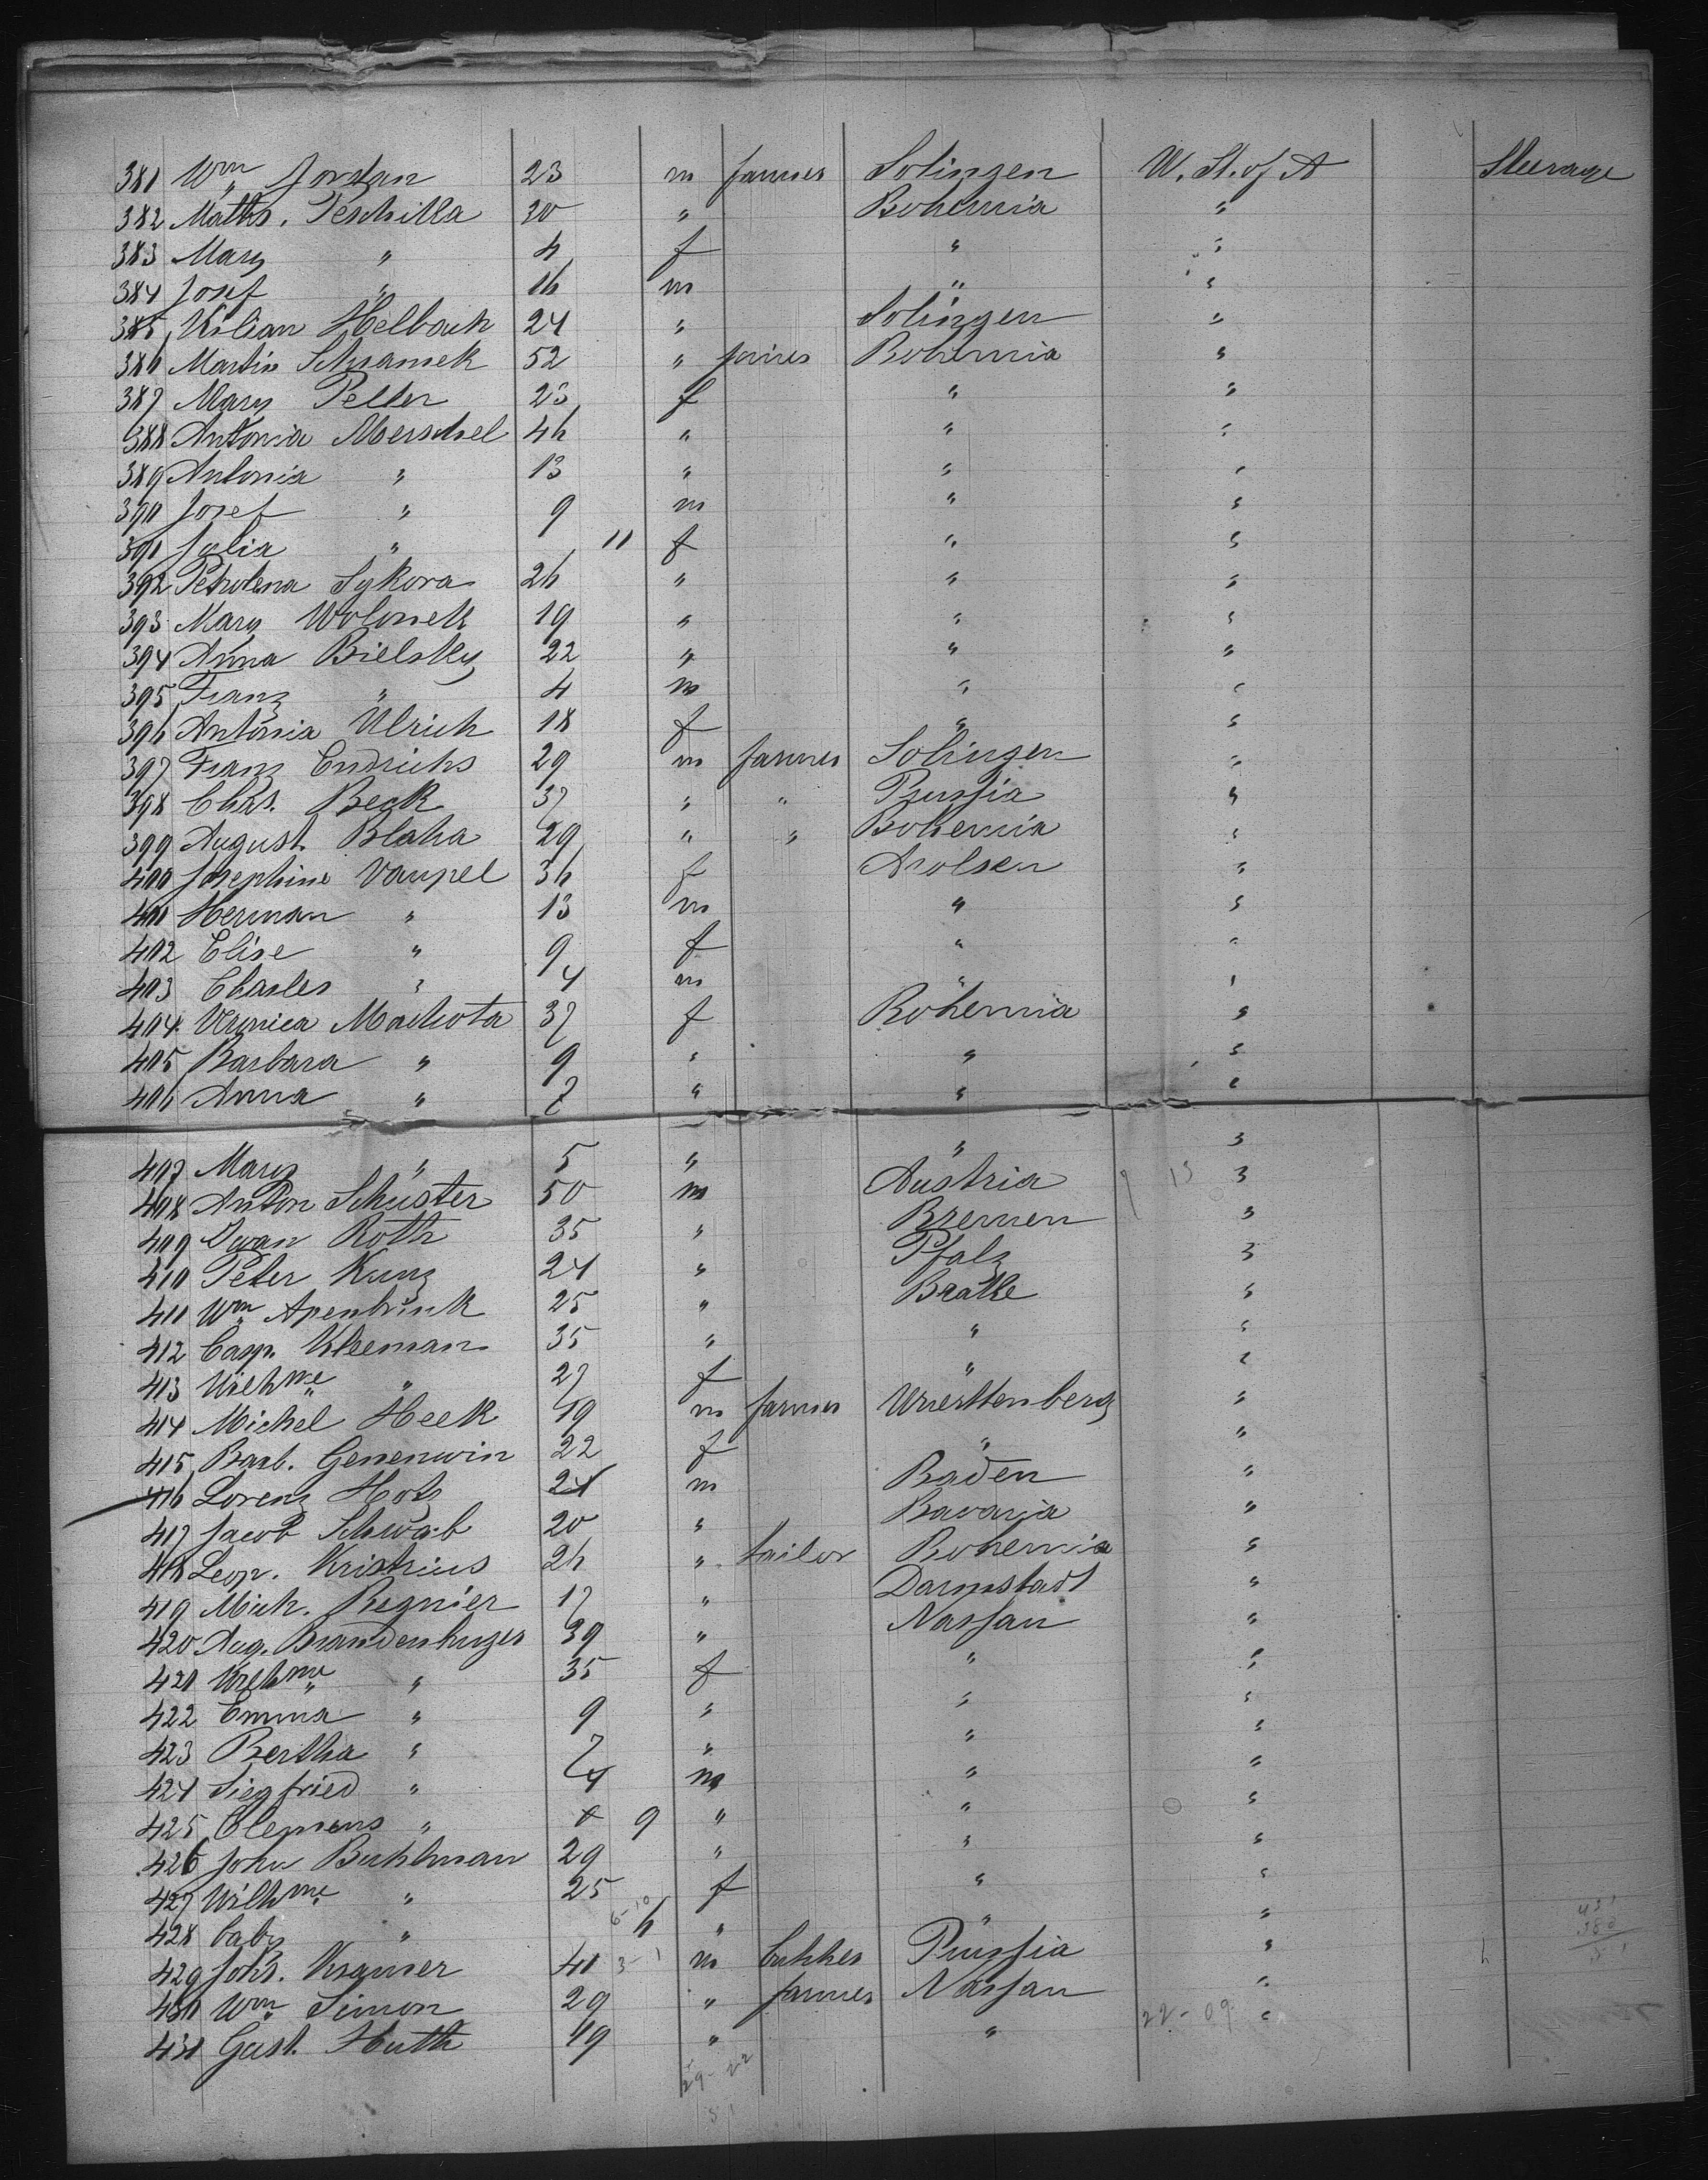 381 Wm Jordan 23 m farmer Solingen U. St. of A Steerage
382 Maths. Peschilla 30 " Bohemia "
383 Mary " 4 f " "
384 Josef " 16 m " "
385 Kilian Helbach 24 " Solingen "
386 Martin Schramek 52 " joiner Bohemia "
387 Mary Peller 23 f " "
388 Antonia Merschel 46 " " "
389 Antonia " 13 " " "
390 Josef " 9 m " "
391 Julia " 11 f " "
392 Petrolena Sykora 26 " " "
393 Mary Wolonek 19 " " "
394 Anna Bielsky 22 " " "
395 Franz " 4 m " "
396 Antonia Ulrich 18 f " "
397 Franz Endrichs 29 m farmer Solingen "
398 Chas. Beck 37 " " Prussia "
399 August Blaha 29 " " Bohemia "
400 Josephine Vaupel 36 f Arolsen "
401 Herman " 13 m " "
402 Elise " 9 f " "
403 Charles " 4 m " "
404 Veronica Machota 37 f Bohemia "
405 Barbara " 9 " " "
406 Anna " 7 " " "
407 Mary " 5 " " "
408 Anton Schuster 50 m Austria "
409 Iwan Roth 35 " Bremen "
410 Peter Kunz 24 " Pfalz "
411 Wm Apenbrink 25 " Brake "
412 Casp. Kleeman 35 " " "
413 Wilhme " 27 f " "
414 Michel Heck 19 m farmer Wuerttemberg "
415 Barb. Genenwin 22 f " "
416 Lorenz Hotz 24 m Baden "
417 Jacob Schwab 20 " Bavaria "
418 Leop. 26 " tailor Bohemia "
419 Mich. Regnier 17 " Darmstadt "
420 Aug. Brandenburger 39 " Nassau "
421 Wilhme " 35 f " "
422 Emma " 9 " " "
423 Bertha " 7 " " "
424 Siegfried " 4 m " "
425 Clemens " 9 " " "
426 John Buhlman 29 " " "
427 Wilhme " 25 f " "
428 baby " 6 " " "
429 Johs. Kramer 41 m butcher Prussia "
430 Wm Simon 29 " farmer Nassau "
431 Gust. Huth 19 " " "
22-09
29-22